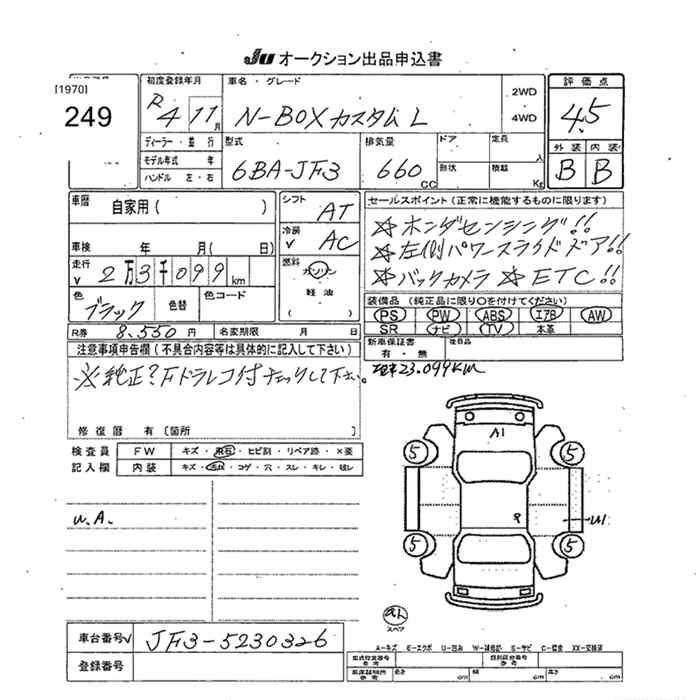 JU オークション出品申込書
[1970]
249
初度登録年月
R 4 11 月
車名・グレード
N-BOXカスタム L
2WD
4WD
評価点
4.5
外装 内装
B B
ディーラー・並行
モデル年式 年
ハンドル 左・右
型式
6BA-JF3
排気量
660 CC
ドア
定員 人
形状
積載 Kg
車歴
自家用( )
車検 年 月( 日)
走行
2万3千099 km
色
ブラック
色替
色コード
シフト
AT
冷房
AC
燃料
ガソリン
軽油
( )
セールスポイント(正常に機能するものに限ります)
☆ホンダセンシング!!
☆左側パワースライドドア!!
☆バックカメラ ☆ETC!!
装備品(純正品に限り○を付けてください)
PS PW ABS エアB AW
SR ナビ TV 本革
R券 8,550 円
名変期限 月 日
新車保証書
有・無
後日品
注意事項申告欄(不具合内容等は具体的に記入して下さい)
※純正?Fドラレコ付チェックして下さい。
23.099KM
修復歴 有〔箇所
検査員
記入欄
FW キズ・飛石・ヒビ割・リペア跡・×要
内装 キズ・汚れ・コゲ・穴・スレ・キレ・破レ
A1
5 5
W1
5 5
スペア
車台番号 JF3-5230326
登録番号
A-キズ E-エクボ U-凹み W-補修跡 S-サビ C-腐食 XX-交換済
cm cm cm